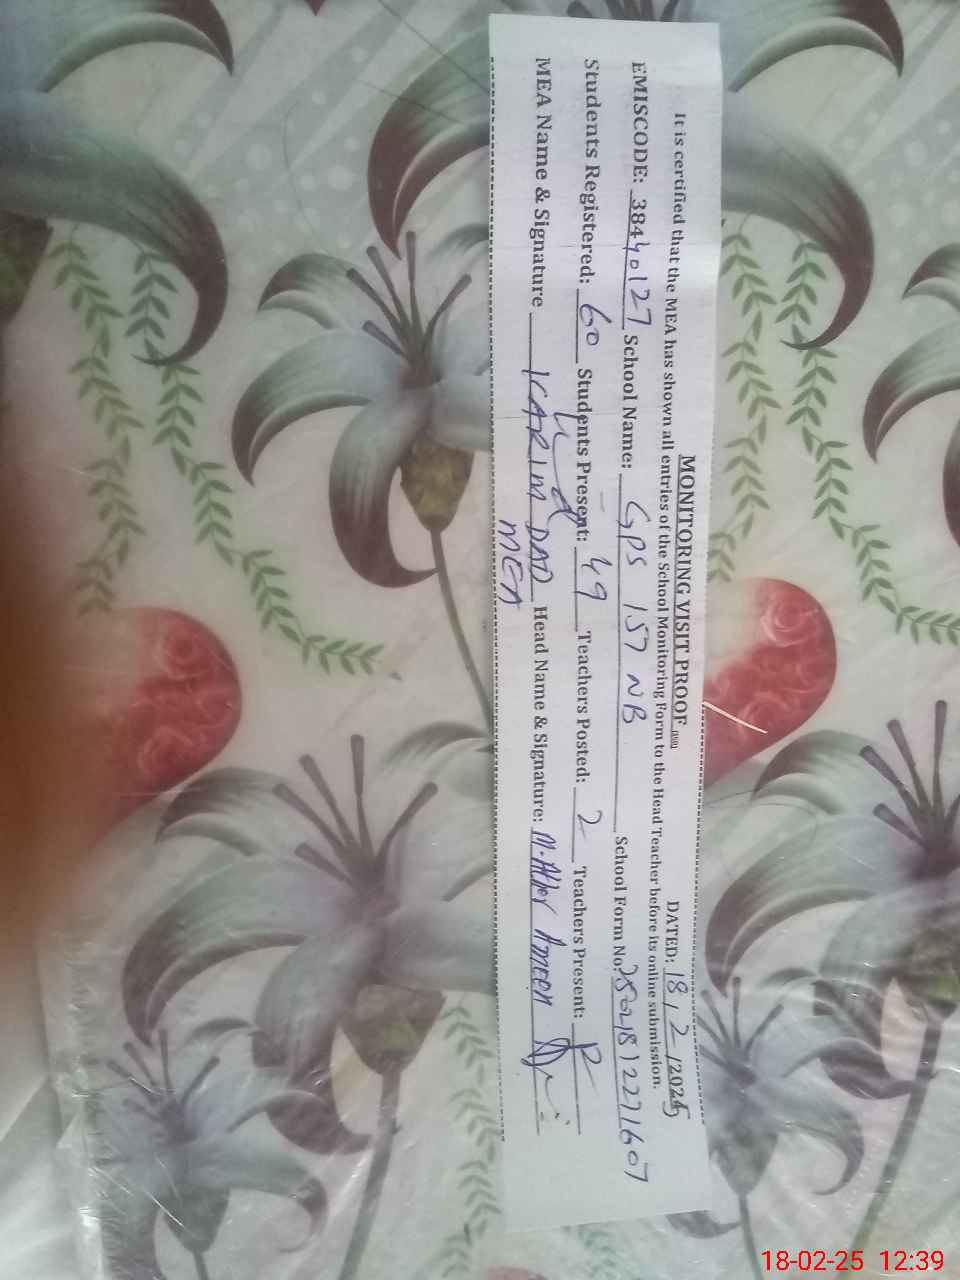 MONITORING VISIT PROOF
DATED: 18/2/2025
It is certified that the MEA has shown all entries of the School Monitoring Form to the Head Teacher before its online submission.
EMISCODE: 38440127 School Name: GPS 157 NB School Form No. 25021812271607
Students Registered: 60 Students Present: 49 Teachers Posted: 2 Teachers Present:
MEA Name & Signature KARIM DAD Head Name & Signature: M. Ather Ameen
MEA
18-02-25 12:39